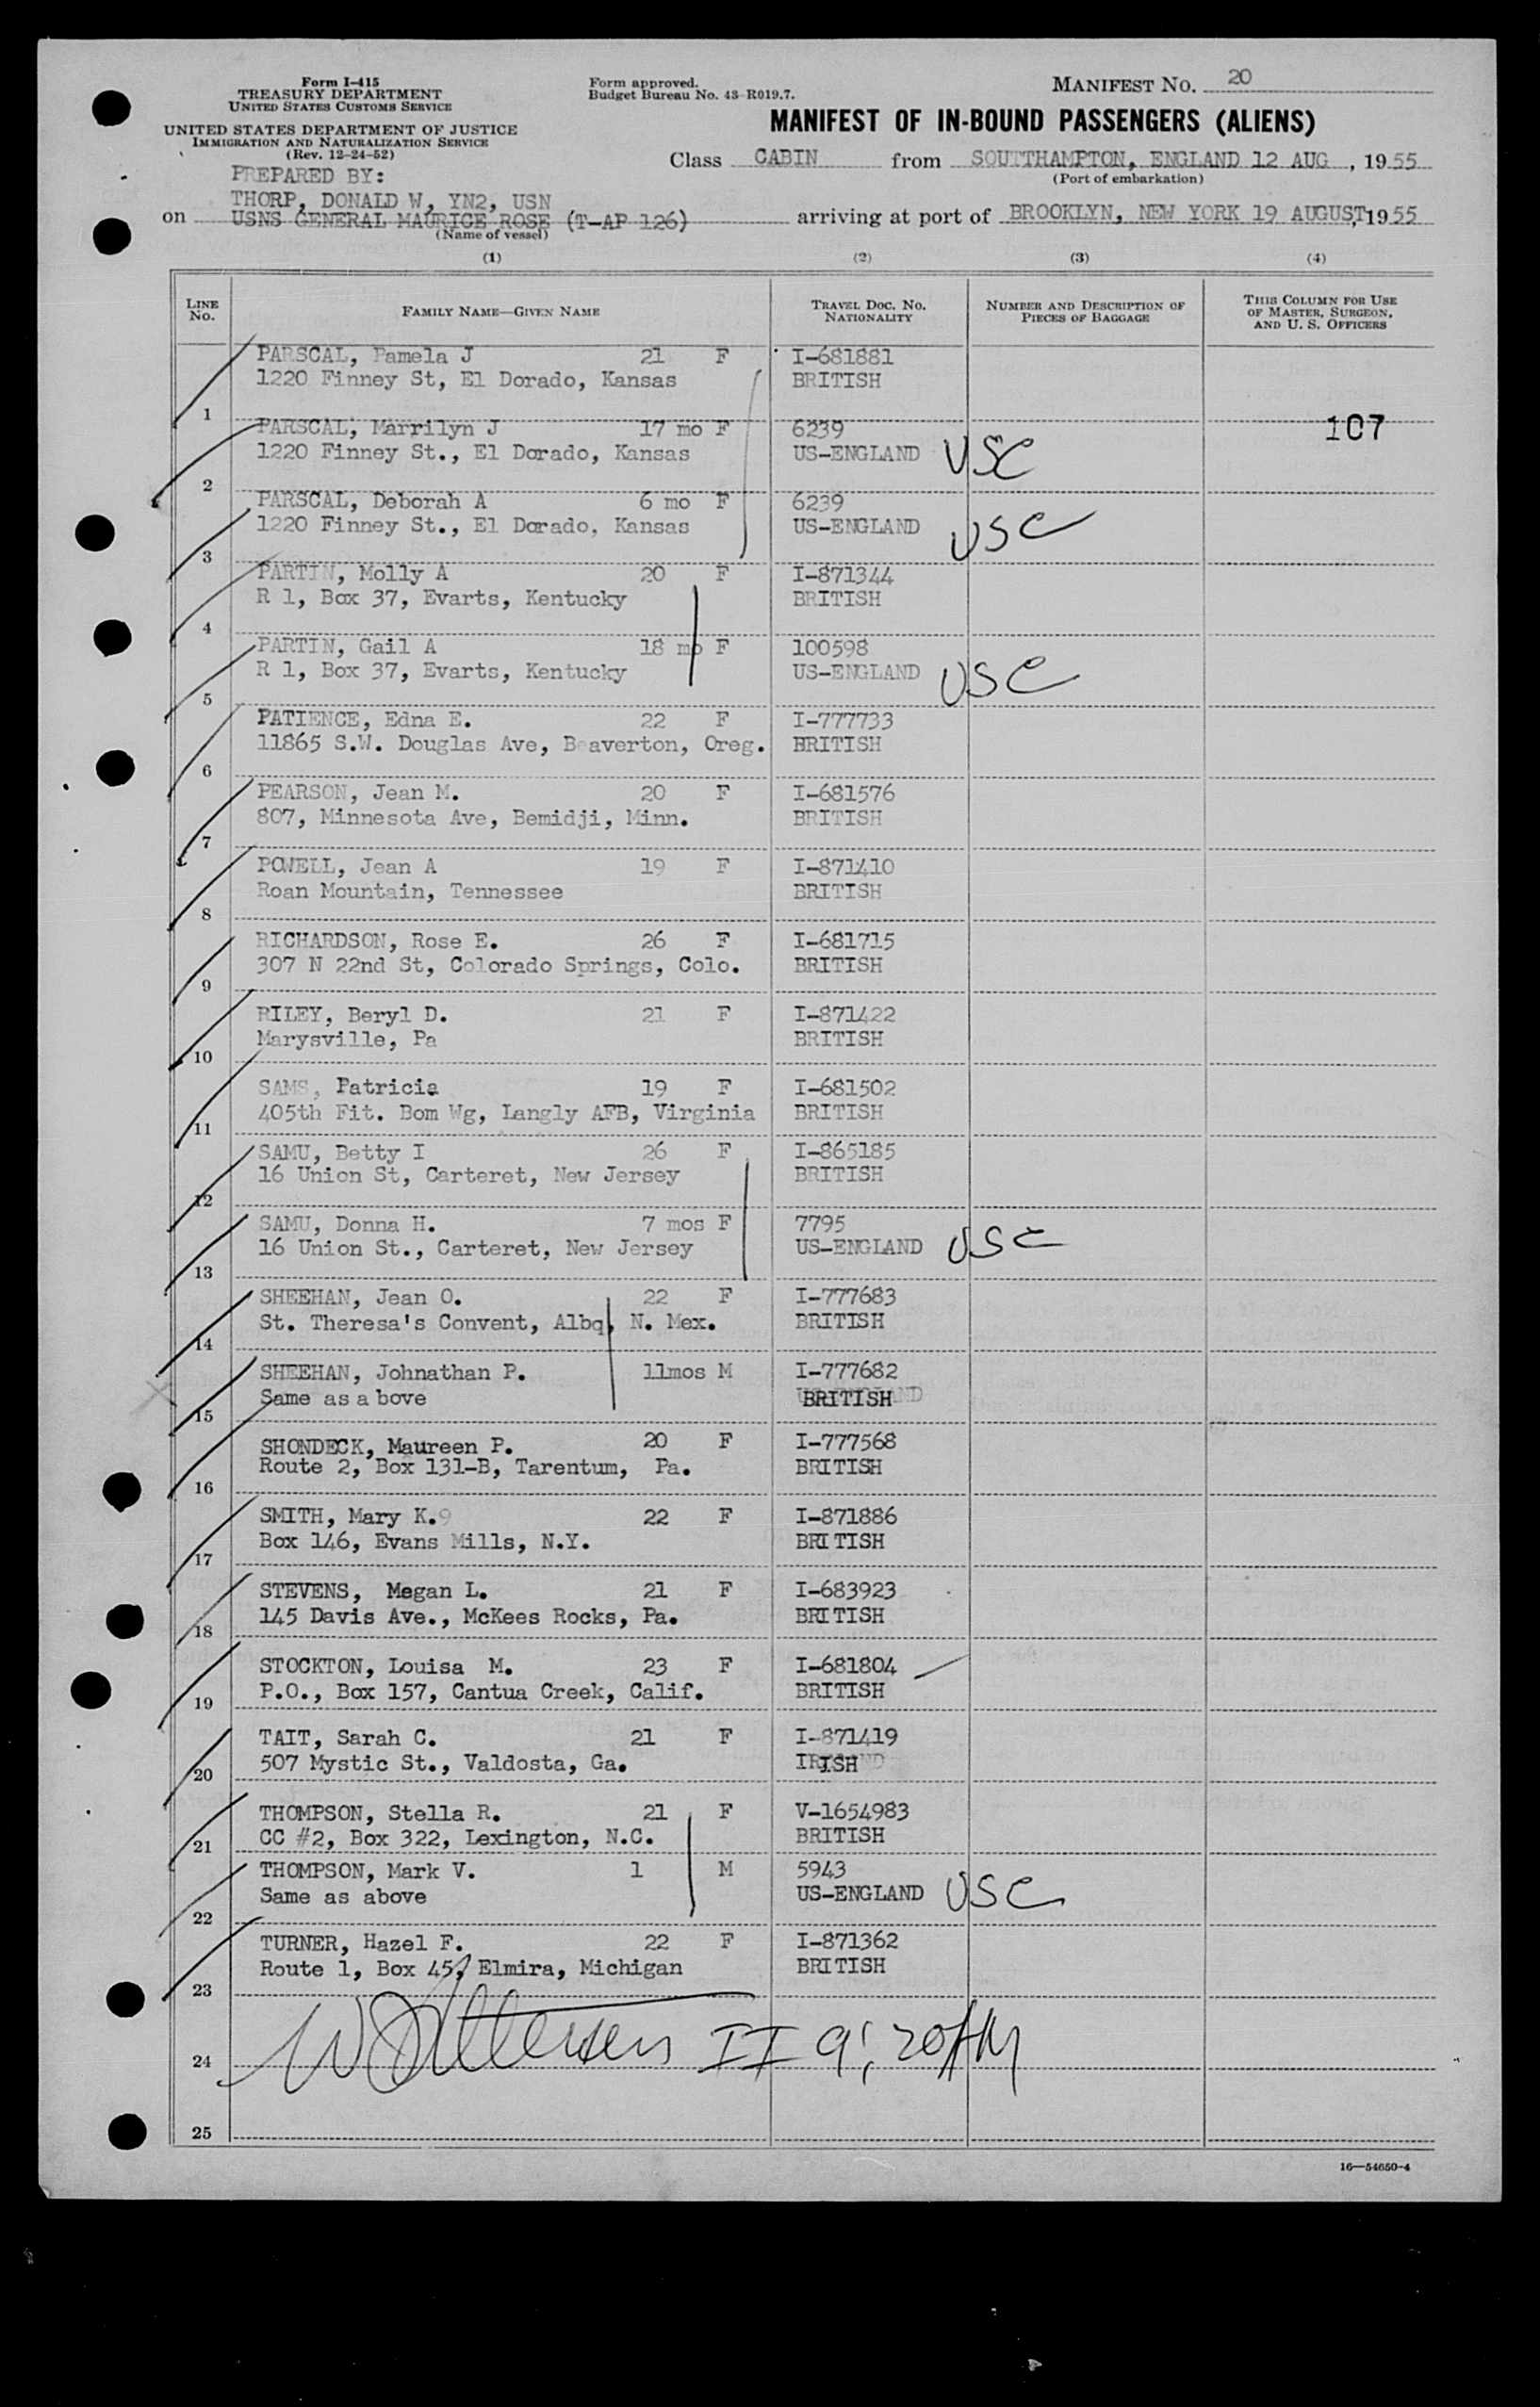 Form I-415
TREASURY DEPARTMENT
UNITED STATES CUSTOMS SERVICE
UNITED STATES DEPARTMENT OF JUSTICE
IMMIGRATION AND NATURALIZATION SERVICE
(Rev. 12-24-52)
Form approved.
Budget Bureau No. 43-R019.7.
MANIFEST NO. 20
MANIFEST OF IN-BOUND PASSENGERS (ALIENS)
Class CABIN from SOUTTHAMPTON, ENGLAND 12 AUG, 1955
(Port of embarkation)
PREPARED BY:
THORP, DONALD W, YN2, USN
on USNS GENERAL MAURICE ROSE (T-AP 126) arriving at port of BROOKLYN, NEW YORK 19 AUGUST, 1955
(Name of vessel)
(1) (2) (3) (4)
LINE NO. FAMILY NAME—GIVEN NAME TRAVEL DOC. NO. NATIONALITY NUMBER AND DESCRIPTION OF PIECES OF BAGGAGE THIS COLUMN FOR USE OF MASTER, SURGEON, AND U. S. OFFICERS
PARSCAL, Pamela J 21 F I-681881
1220 Finney St, El Dorado, Kansas BRITISH
1
PARSCAL, Marrilyn J 17 mo F 6239 107
1220 Finney St., El Dorado, Kansas US-ENGLAND USC
2
PARSCAL, Deborah A 6 mo F 6239
1220 Finney St., El Dorado, Kansas US-ENGLAND USC
3
PARTIN, Molly A 20 F I-871344
R 1, Box 37, Evarts, Kentucky BRITISH
4
PARTIN, Gail A 18 mo F 100598
R 1, Box 37, Evarts, Kentucky US-ENGLAND USC
5
PATIENCE, Edna E. 22 F I-777733
11865 S.W. Douglas Ave, Beaverton, Oreg. BRITISH
6
PEARSON, Jean M. 20 F I-681576
807, Minnesota Ave, Bemidji, Minn. BRITISH
7
POWELL, Jean A 19 F I-871410
Roan Mountain, Tennessee BRITISH
8
RICHARDSON, Rose E. 26 F I-681715
307 N 22nd St, Colorado Springs, Colo. BRITISH
9
RILEY, Beryl D. 21 F I-871422
Marysville, Pa BRITISH
10
SAMS, Patricia 19 F I-681502
405th Fit. Bom Wg, Langly AFB, Virginia BRITISH
11
SAMU, Betty I 26 F I-865185
16 Union St, Carteret, New Jersey BRITISH
12
SAMU, Donna H. 7 mos F 7795
16 Union St., Carteret, New Jersey US-ENGLAND USC
13
SHEEHAN, Jean O. 22 F I-777683
St. Theresa's Convent, Albq, N. Mex. BRITISH
14
SHEEHAN, Johnathan P. 11mos M I-777682
Same as above BRITISH
15
SHONDECK, Maureen P. 20 F I-777568
Route 2, Box 131-B, Tarentum, Pa. BRITISH
16
SMITH, Mary K. 22 F I-871886
Box 146, Evans Mills, N.Y. BRITISH
17
STEVENS, Megan L. 21 F I-683923
145 Davis Ave., McKees Rocks, Pa. BRITISH
18
STOCKTON, Louisa M. 23 F I-681804
P.O., Box 157, Cantua Creek, Calif. BRITISH
19
TAIT, Sarah C. 21 F I-871419
507 Mystic St., Valdosta, Ga. IRISH
20
THOMPSON, Stella R. 21 F V-1654983
CC #2, Box 322, Lexington, N.C. BRITISH
21
THOMPSON, Mark V. 1 M 5943
Same as above US-ENGLAND USC
22
TURNER, Hazel F. 22 F I-871362
Route 1, Box 45, Elmira, Michigan BRITISH
23
II 9:20 AM
24
25
16—54650-4